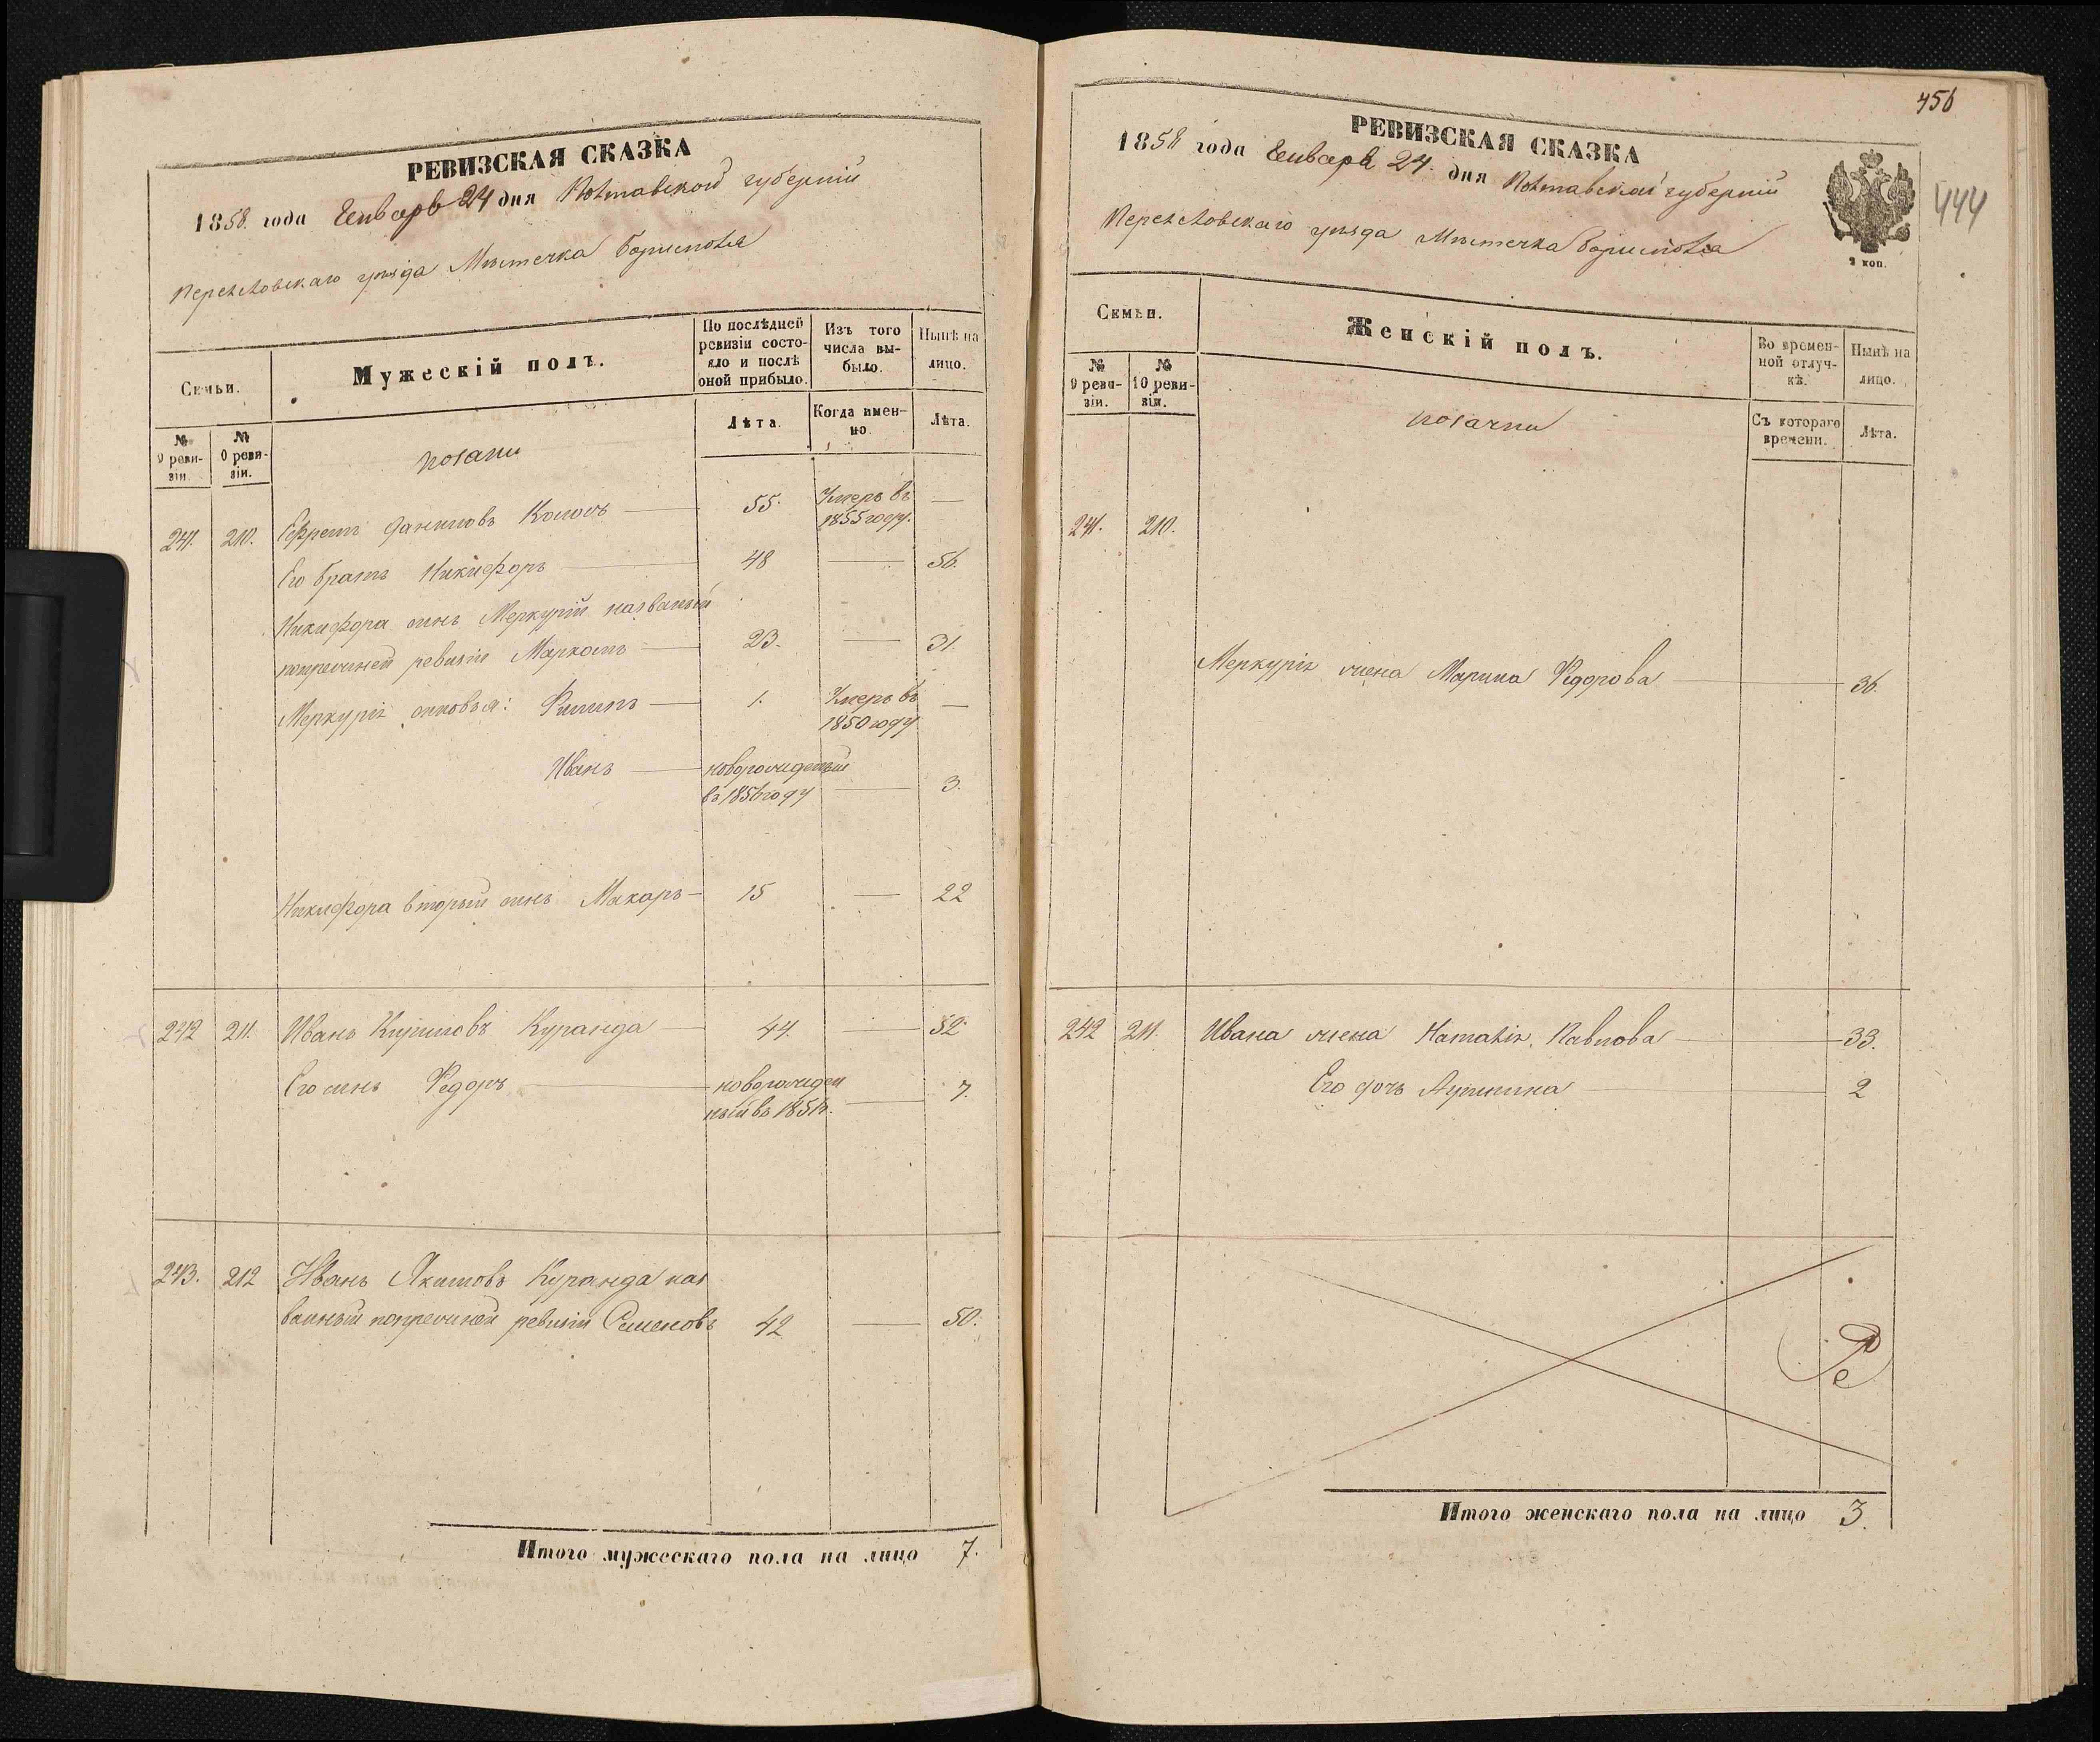 РЕВИЗСКАЯ СКАЗКА
1858. года Генваря 24 дня Полтавской губерніи
Переяловскаго уѣзда Мѣстечка Борисполя
Семьи.
Мужескій полъ.
По послѣдней ревизіи состояло и послѣ оной прибыло.
Изъ того числа выбыло.
Нынѣ на лицо.
№ 9 ревизіи.
№ 0 ревизіи.
Козаки
Лѣта.
Когда именно
Лѣта.
241. 210. Ефремъ Даниловъ 55. Умеръ въ 1855 году. —
Его братъ Никифоръ — 48 — 56.
Никифора сынъ Меркурій названый
попрежней ревизіи Маркомъ — 23. — 31.
Меркурія сыновья: Филипъ — 1. Умеръ въ 1850 году —
Иванъ — новорожденый въ 1856 году — 3.
Никифора вторый сынъ Макаръ — 15 — 22
242 211. Иванъ Кириловъ Куранда — 44. — 52.
Его сынъ Федоръ — новорожденный въ 1851г. — 7.
243. 212 Иванъ Якимовъ Куранда наз
ванный попрежней ревизіи Семеновъ 42 — 50.
Итого мужескаго пола на лицо 7.
456
444
РЕВИЗСКАЯ СКАЗКА
1858 года Генваря 24. дня Полтавской губерніи
Переяловскаго уѣзда Мѣстечка Борисполя
2 коп.
Семьи.
Женскій полъ.
Во временной отлучкѣ.
Нынѣ на лицо.
№ 9 ревизіи.
№ 10 ревизіи.
Козачки
Съ котораго времени.
Лѣта.
241. 210.
Меркурія жена Марина Федорова — 36.
242 211. Ивана жена Наталія Павлова — 33.
Его дочь — 2
Итого женскаго пола на лицо 3.